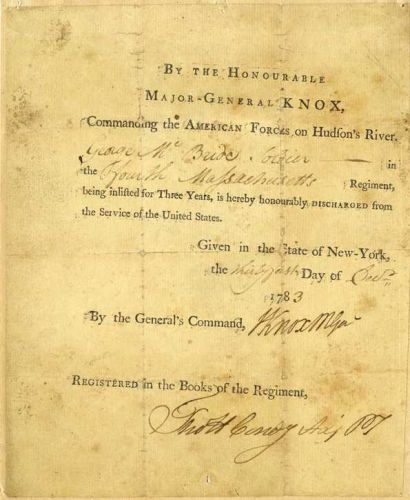 By the Honourable
Major-General KNOX,
Commanding the American Forces on Hudson's River.
George Mc Bride Soldier — in
the Fourth Massachusetts Regiment,
being inlisted for Three Years, is hereby honourably discharged from
the Service of the United States.
Given in the State of New-York,
the Day of Decr.
1783
By the General's Command, HKnox MGen
Registered in the Books of the Regiment,